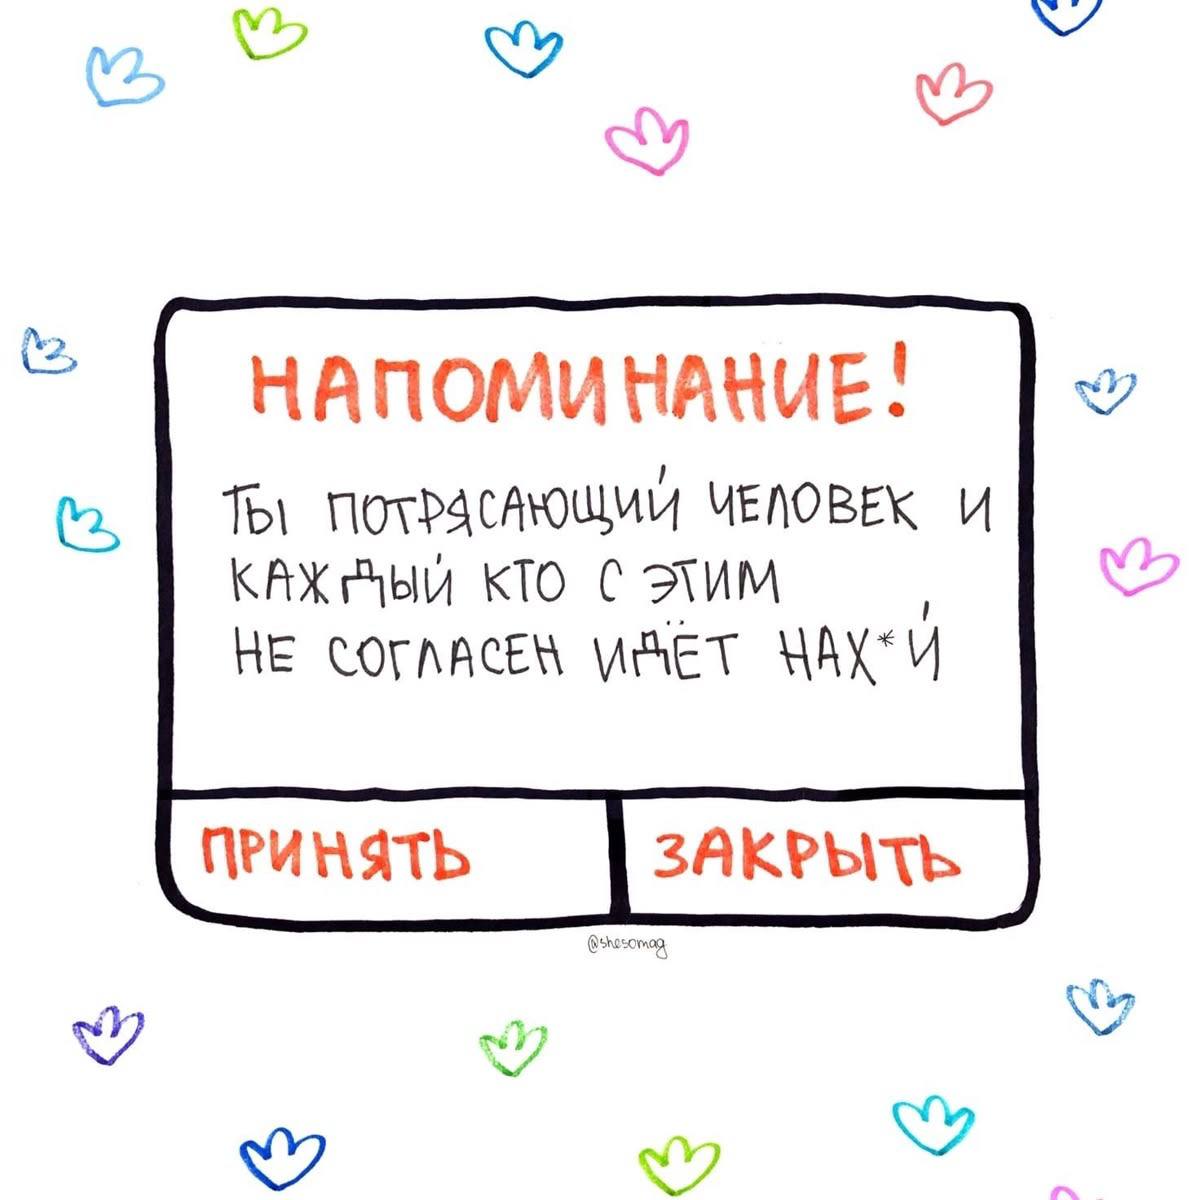 НАПОМИНАНИЕ!
ТЫ ПОТРЯСАЮЩИЙ ЧЕЛОВЕК И
КАЖДЫЙ КТО С ЭТИМ
НЕ СОГЛАСЕН ИДЁТ НАХ*Й
ПРИНЯТЬ
ЗАКРЫТЬ
@shesomag